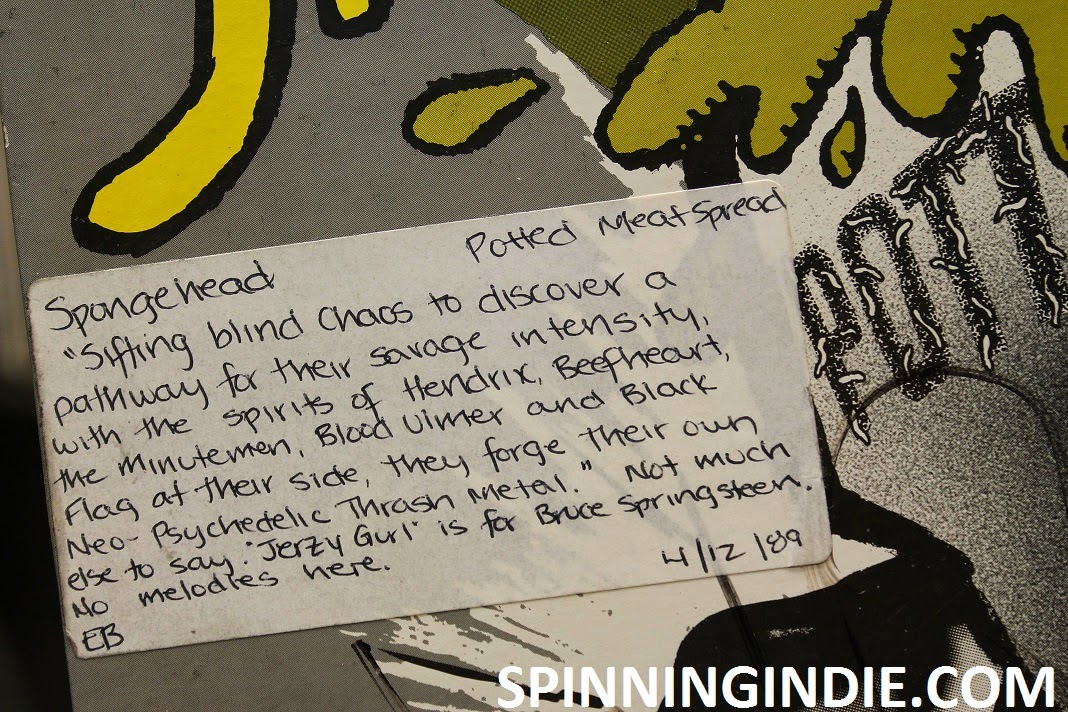 Spongehead Potted Meat Spread
"Sifting blind chaos to discover a
pathway for their savage intensity,
with the spirits of Hendrix, Beefheart,
the Minutemen, Blood Ulmer and Black
Flag at their side, they forge their own
Neo-Psychedelic Thrash Metal." Not much
else to say. "Jerzy Gurl" is for Bruce Springsteen.
No melodies here.
4/12/89
EB
POTT
SPINNINGINDIE.COM